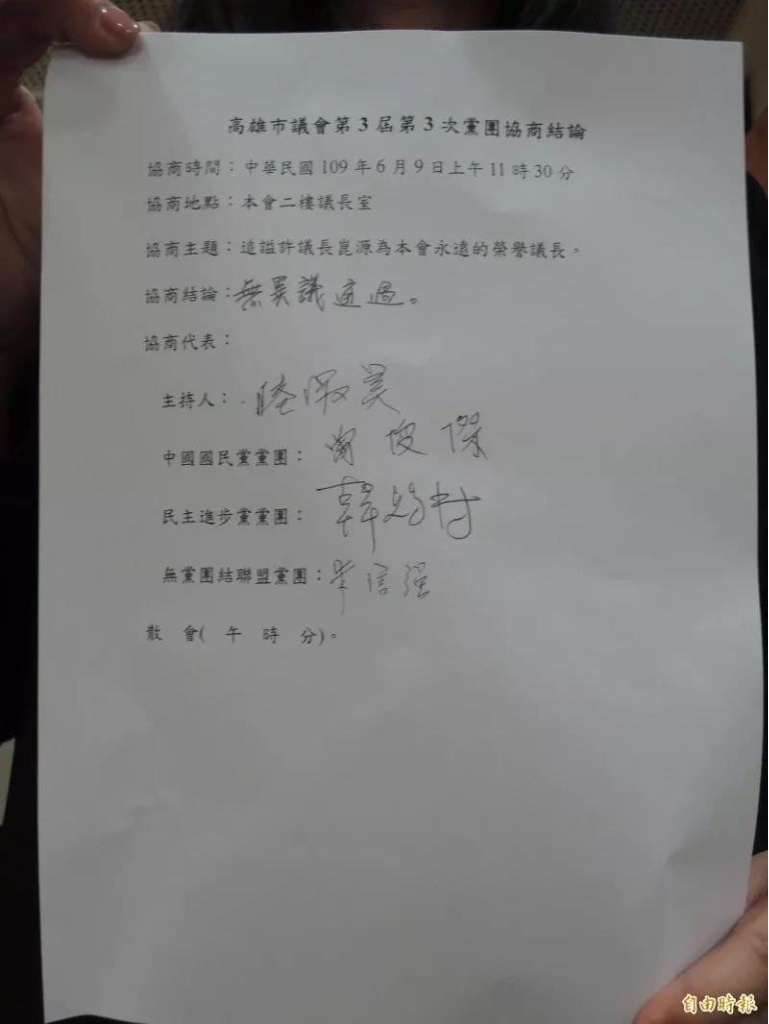 高雄市議會第3屆第3次黨團協商結論
協商時間：中華民國109年6月9日上午11時30分
協商地點：本會二樓議長室
協商主題：追謚許議長崑源為本會永遠的榮譽議長。
協商結論：無異議通過。
協商代表：
主持人：陸淑美
中國國民黨黨團：曾俊傑
民主進步黨黨團：韓賜村
無黨團結聯盟黨團：信強
散 會( 午 時 分)。
自由時報